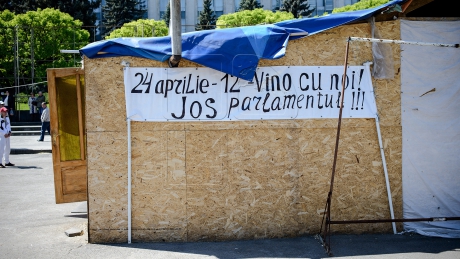 24 aprilie - 12 Vino cu noi!
Jos parlamentul!!!